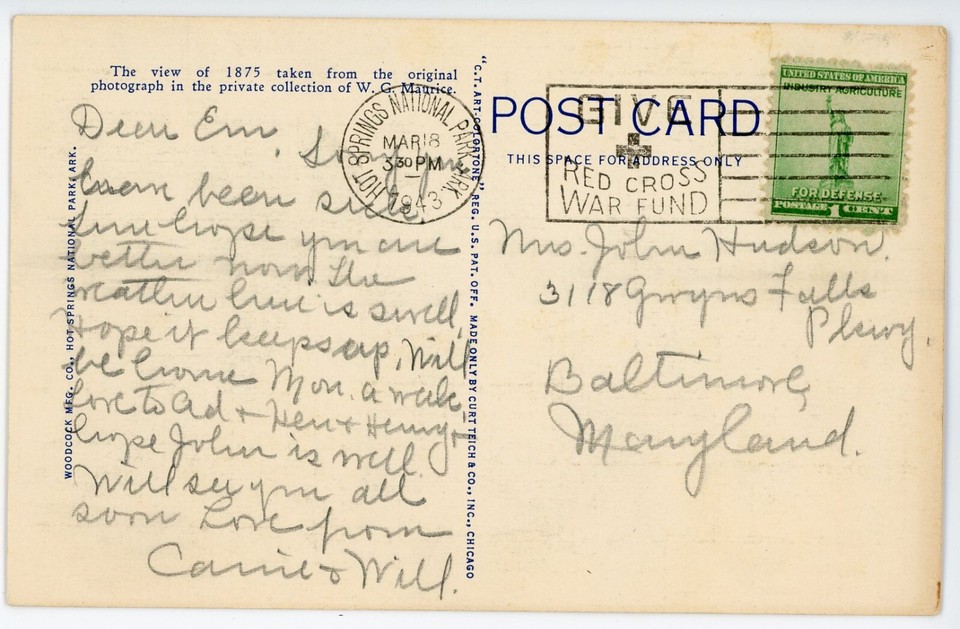 The view of 1875 taken from the original
photograph in the private collection of W. G. Maurice.
Dear Em, Sorry you
have been sick
but hope you are
better now. The
weather here is swell,
Hope it keeps up, Will
be home Mon. a week.
Love to Ad + Hen + Henry +
hope John is well.
Will see you all
soon Love from
Carrie + Will.
WOODCOCK MFG. CO., HOT SPRINGS NATIONAL PARK, ARK.
"C.T. ART-COLORTONE" REG. U.S. PAT. OFF. MADE ONLY BY CURT TEICH & CO., INC., CHICAGO
HOT SPRINGS NATIONAL PARK, ARK.
MAR 18
3 30 PM
1943
POST CARD
THIS SPACE FOR ADDRESS ONLY
GIVE
RED CROSS
WAR FUND
UNITED STATES OF AMERICA
INDUSTRY AGRICULTURE
FOR DEFENSE
POSTAGE 1 CENT
Mrs. John Hudson.
3118 Gwyns Falls
Pkwy.
Baltimore,
Maryland.